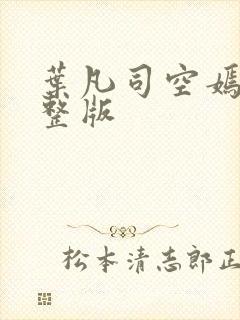 葉凡司空嫣
整版
松本清志郎正